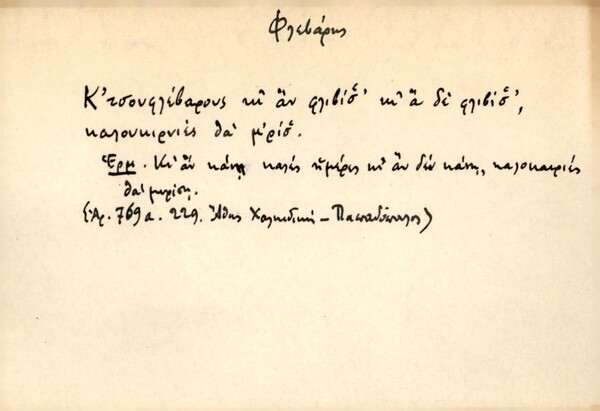 Φλεβάρης
Κ'τσουφλέβαρους κι ἂν φλιβίσ̌' κι ἂ δὲ φλιβίσ̌',
καλουκιρνιές θὰ μ'ρίσ̌.
Ἑρμ. Κι' ἂν κάνῃ καλές ἡμέρες κι ἂν δὲν κάνῃ, καλοκαιριές
θὰ μυρίσῃ.
(Ἀρ. 769α. 229. Χαλκιδική - Παπαδόπουλος)